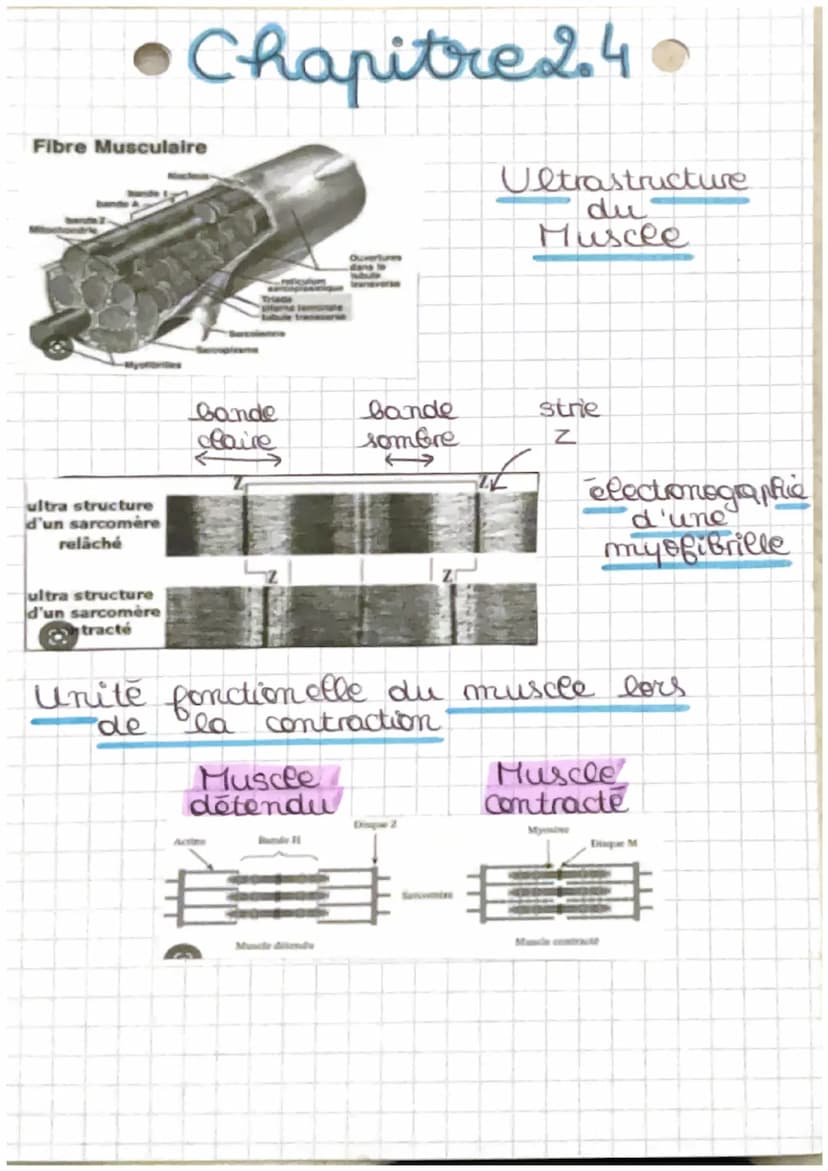 Chapitre 2.4
Fibre Musculaire
Nucleus
bande I
bande A
bande Z
Mitochondrie
Ultrastructure
du
Muscle
Ouvertures
dans le
tubule
transverse
réticulum
sarcoplasmique
Triade
citerne terminale
tubule transverse
Sarcolemme
Sarcoplasme
Myofibrilles
bande
claire
bande
sombre
strie
Z
Z
Z
ultra structure
d'un sarcomère
relâché
électronographie
d'une
myofibrille
Z
Z
ultra structure
d'un sarcomère
tracté
Unité fonctionelle du muscle lors
de la contraction
Muscle
détendu
Muscle
contracté
Actine
Bande H
Disque Z
Myosine
Disque M
Sarcomère
Muscle détendu
Muscle contracté